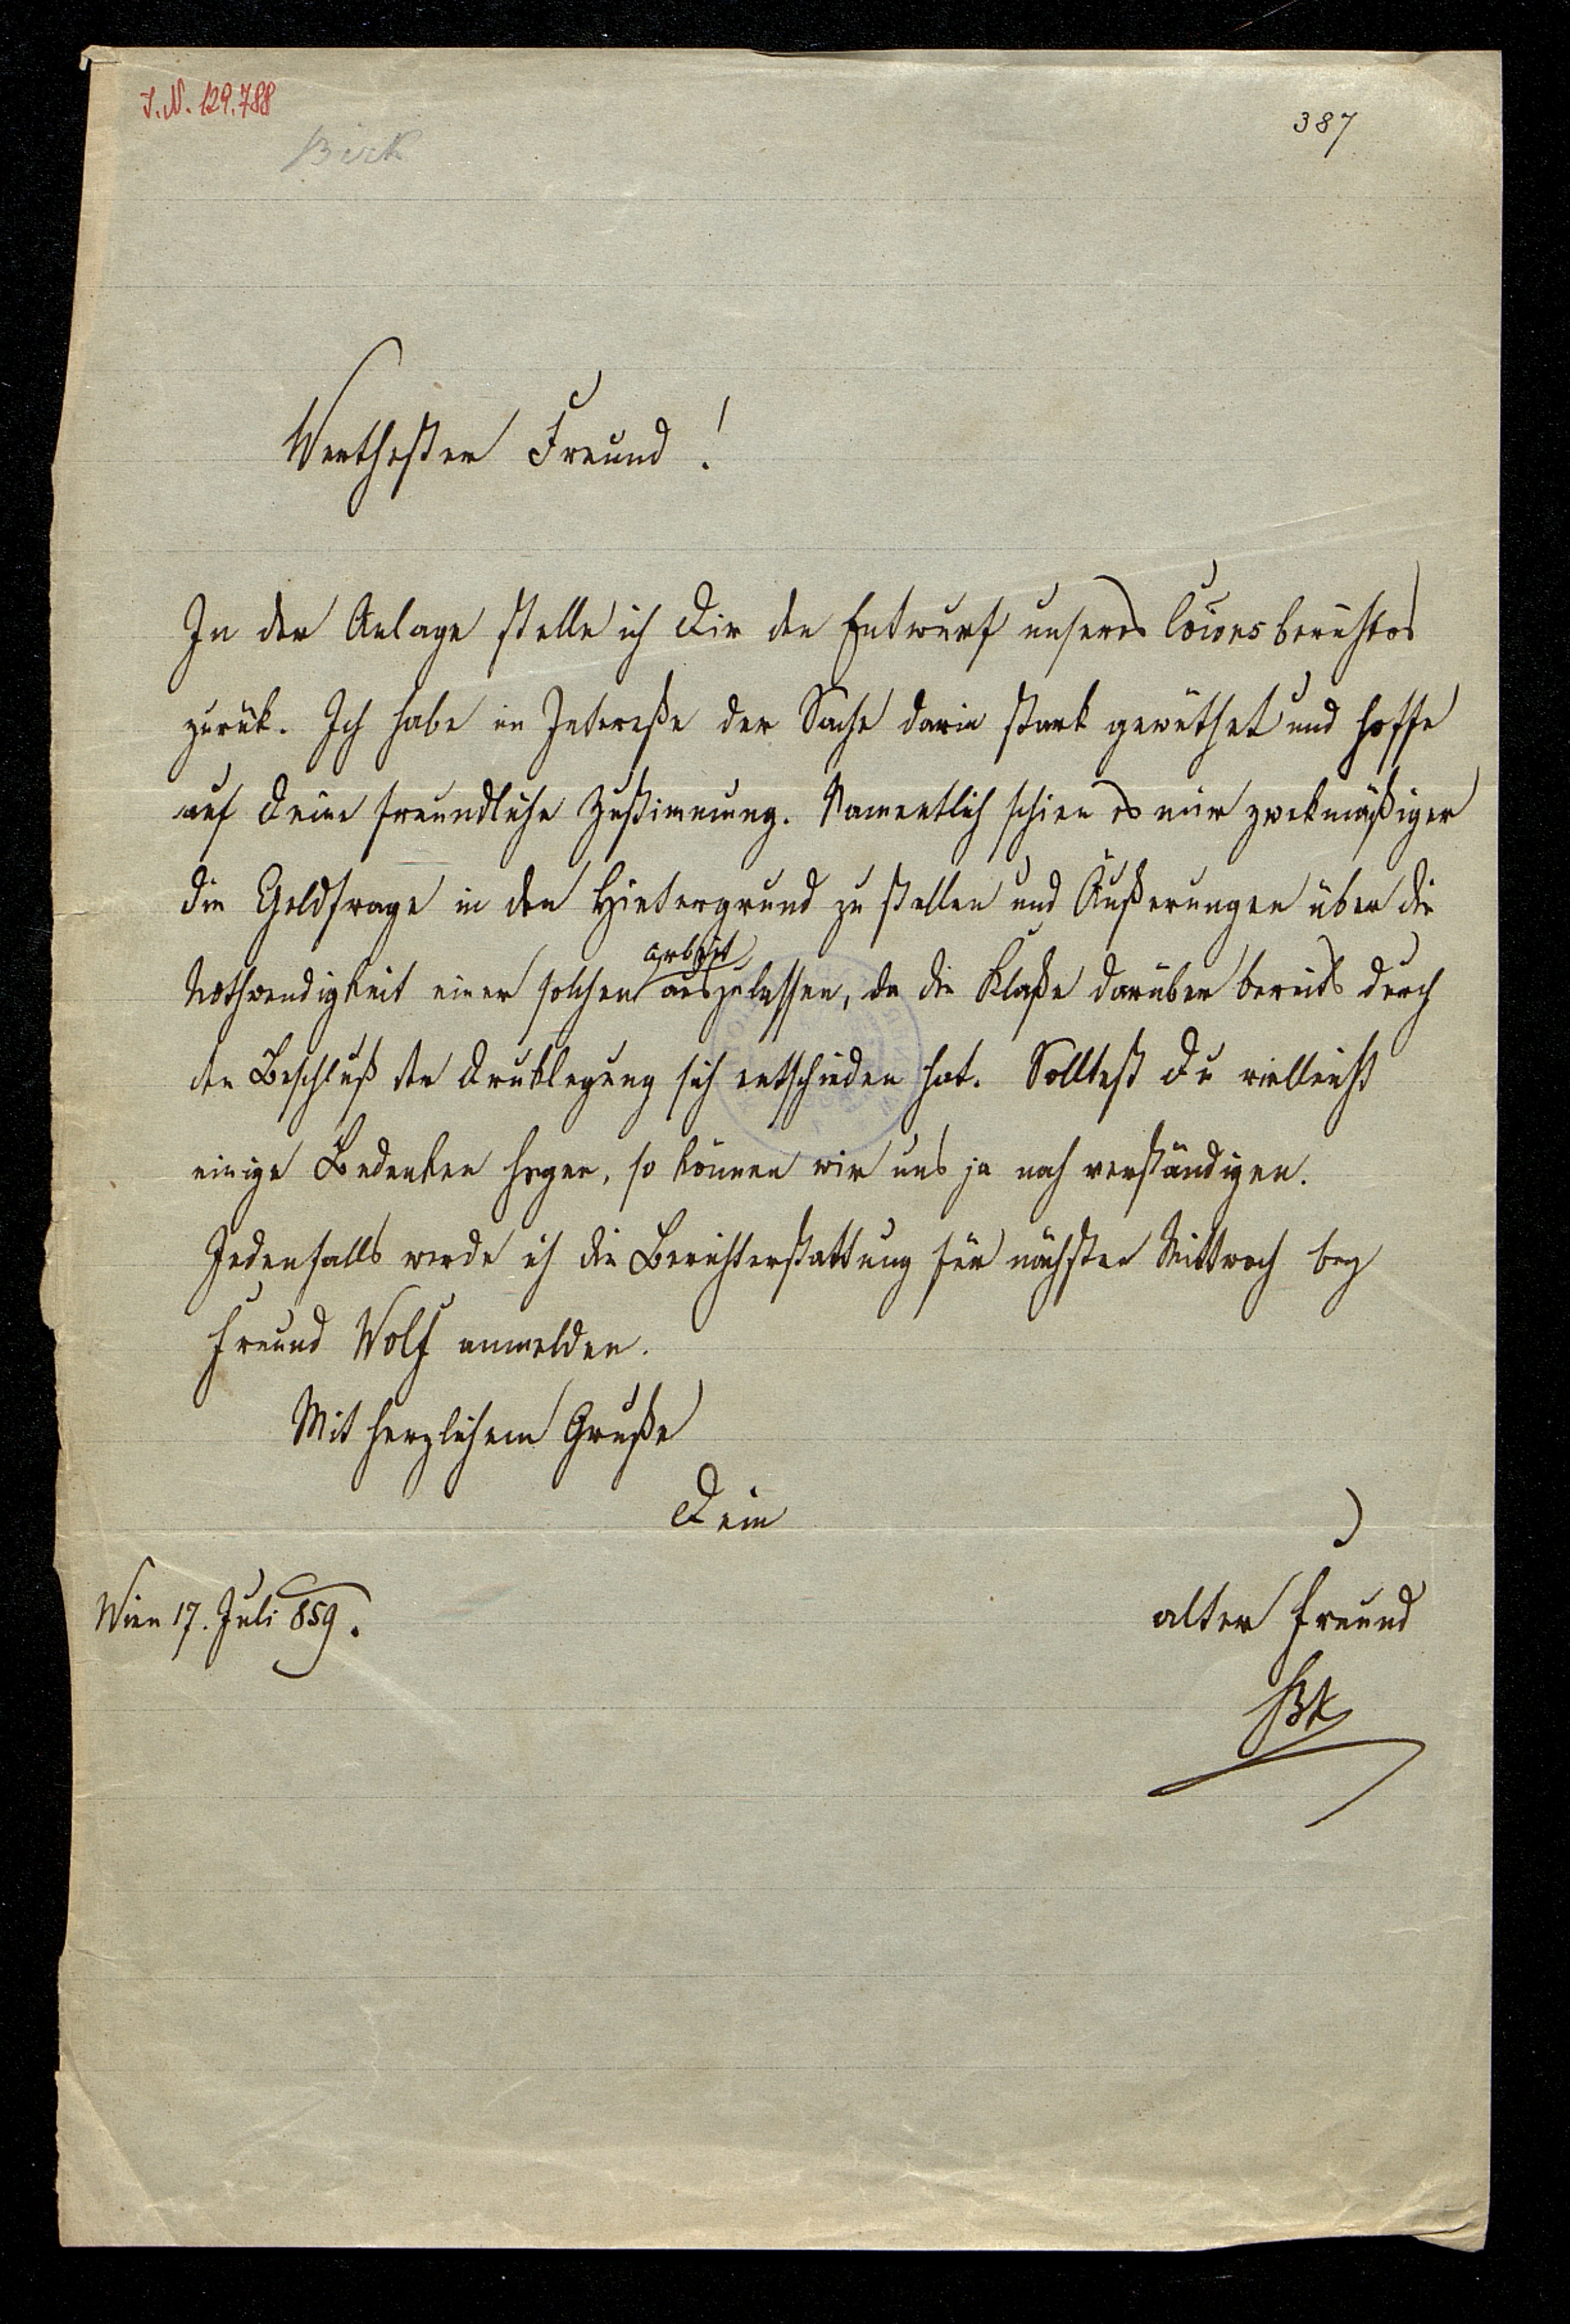 I.N. 129.788
Birk
387
Werthester Freund!
In der Anlage stelle ich Dir den Entwurf unseres Coōnsberichtes
zurük. Ich habe im Intereße der Sache darin stark gewüthet und hoffe
auf Deine freundliche Zustimmung. Namentlich schien es mir zwekmäßiger
die Geldfrage in den Hintergrund zu stellen und Äußerungen über die
Arbeit
Nothwendigkeit einer solchen auszulassen, da die Klaße darüber bereits durch
den Beschluß der Druklegung sich entschieden hat. Solltest Du vielleicht
einige Bedenken hegen, so können wir uns ja noch verständigen.
Jedenfalls werde ich die Berichterstattung für nächsten Mittwoch bey
Freund Wolf anmelden.
Mit herzlichem Gruße
Dein
Wien 17. Juli 859.
alter Freund
Bk